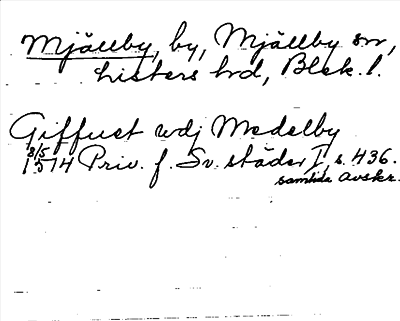 Mjällby, by, Mjällby sn,
Listers hd, Blek. l.
Giffuet wdj Medelby
8/5 1514 Priv. f. Sv. städer I, s. 436.
samtida avskr.